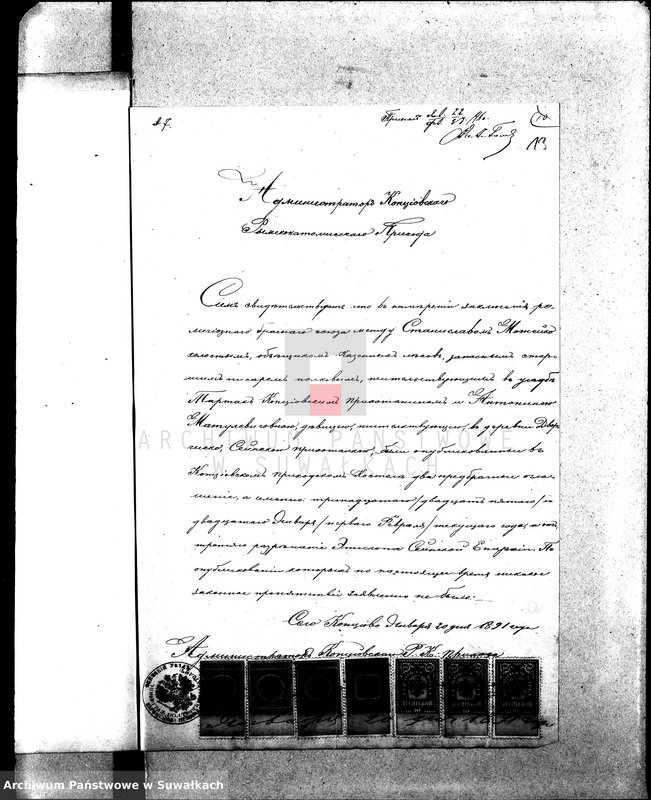 № 7.
Администраторъ Копціовскаго
Римскокатолическаго Прихода
Симъ свидѣтельствуетъ что въ намѣреніи заключенія ре-
лигіознаго брачнаго союза между Станиславомъ Можейко
холостымъ, объѣщикомъ Казенныхъ лѣсовъ, запаснымъ стар-
шимъ писаремъ полковымъ, жительствующимъ въ усадьбѣ
Тартакъ Копціовскимъ прихожаниномъ и Антониною
Матулевичовною, дѣвицею, жительствующею въ деревни
Сейнскою прихожанкою, были опубликованы въ
Копціовскомъ приходскомъ Костелѣ два предбрачныя огла-
шенія, а именно тринадцатаго /двадцать пятаго/ и
двадцатаго Января /перваго Февраля/ текущаго года а отъ
третьяго разрѣшеніе Епископа Сейнской Епархіи. По
опубликованіи которыхъ по настоящее время никакое
законное препятствіе заявлено не было.
Село Копціово Января 20 дня 1891 года
Администраторъ Копціовскаго Р. К. прихода
ARCHIWUM PAŃSTWOWE
W SUWAŁKACH
Archiwum Państwowe w Suwałkach